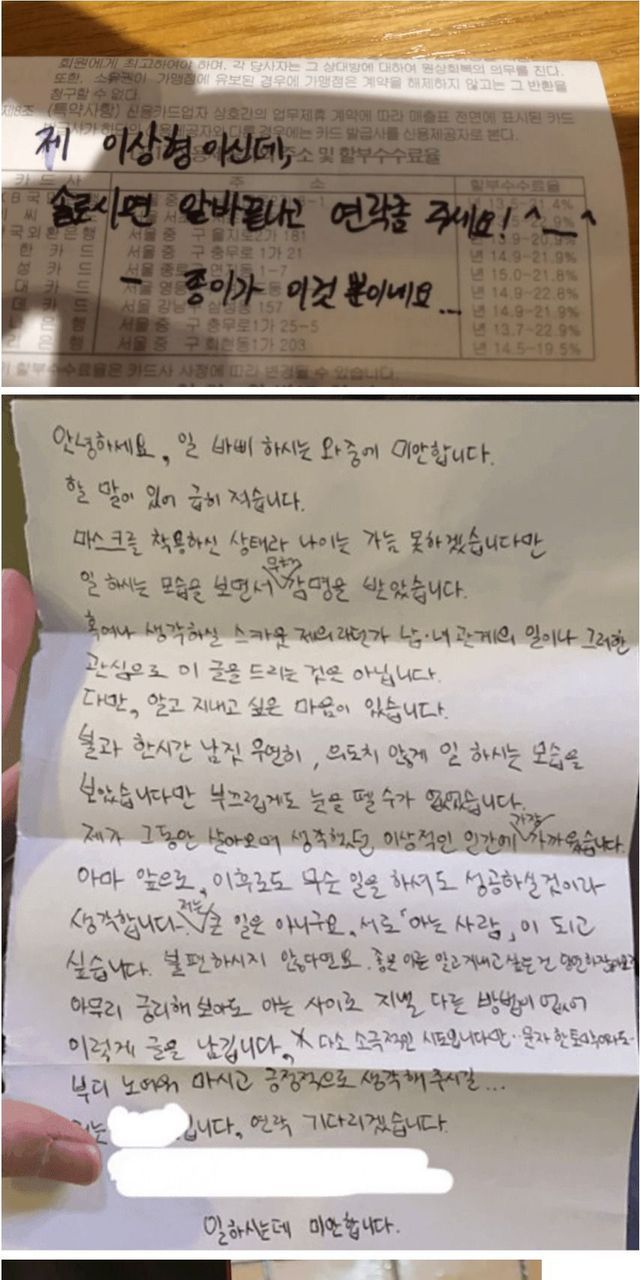 회원에게 최고하여야 하며, 각 당사자는 그 상대방에 대하여 원상회복의 의무를 진다.
또한, 소유권이 가맹점에 유보된 경우에 가맹점은 계약을 해제하지 않고는 그 반환을
청구할 수 없다.
제8조 (특약사항) 신용카드업자 상호간의 업무제휴 계약에 따라 매출표 전면에 표시된 카드
신용제공자와 다른 경우에는 카드 발급사를 신용제공자로 본다.
제 이상형이신데,
주소 및 할부수수료율
카 드 사 주 소 할부수수료율
솔로시면 알바끝나고 연락좀 주세요! ^__^
국외환은행 서울 중 구 을지로2가 181
한 카 드 서울 중 구 충무로 1가 21 년 14.9~21.9%
성 카 드 년 15.0~21.8%
- 종이가 이것 뿐이네요...
대 카 드 년 14.9~22.8%
데 카 드 서울 강남구 157 년 14.9~21.9%
서울 중 구 충무로1가 25-5 년 13.7~22.9%
은 행 서울 중 구 회현동1가 203 년 14.5~19.5%
할부수수료율은 카드사 사정에 따라 변경될 수 있습니다.
안녕하세요, 일 바삐 하시는 와중에 미안합니다.
할 말이 있어 급히 적습니다.
마스크를 착용하신 상태라 나이는 가늠 못하겠습니다만
일 하시는 모습을 보면서 감명을 받았습니다.
혹여나 생각하실 스카웃 제의라던가 남·녀 관계의 일이나 그러한
관심으로 이 글을 드리는 것은 아닙니다.
다만, 알고 지내고 싶은 마음이 있습니다.
불과 한시간 남짓 우연히, 의도치 않게 일 하시는 모습을
보았습니다만 부끄럽게도 눈을 뗄 수가 없었습니다.
제가 그동안 살아오며 생각했던 이상적인 인간에 가장 가까웠습니다.
아마 앞으로, 이후로도 무슨 일을 하셔도 성공하실 것이라
생각합니다. 저는 큰 일은 아니구요, 서로 「아는 사람」이 되고
싶습니다. 불편하시지 않다면요. 좋은 이를 알고 지내고 싶은 건 당연하잖아요
아무리 궁리해 보아도 아는 사이로 지낼 다른 방법이 없어
이렇게 글을 남깁니다. * 다소 소극적인 시도입니다만.. 문자 한 토막이라도..
부디 노여워 마시고 긍정적으로 생각해 주시길...
저는 입니다. 연락 기다리겠습니다.
일하시는데 미안합니다.